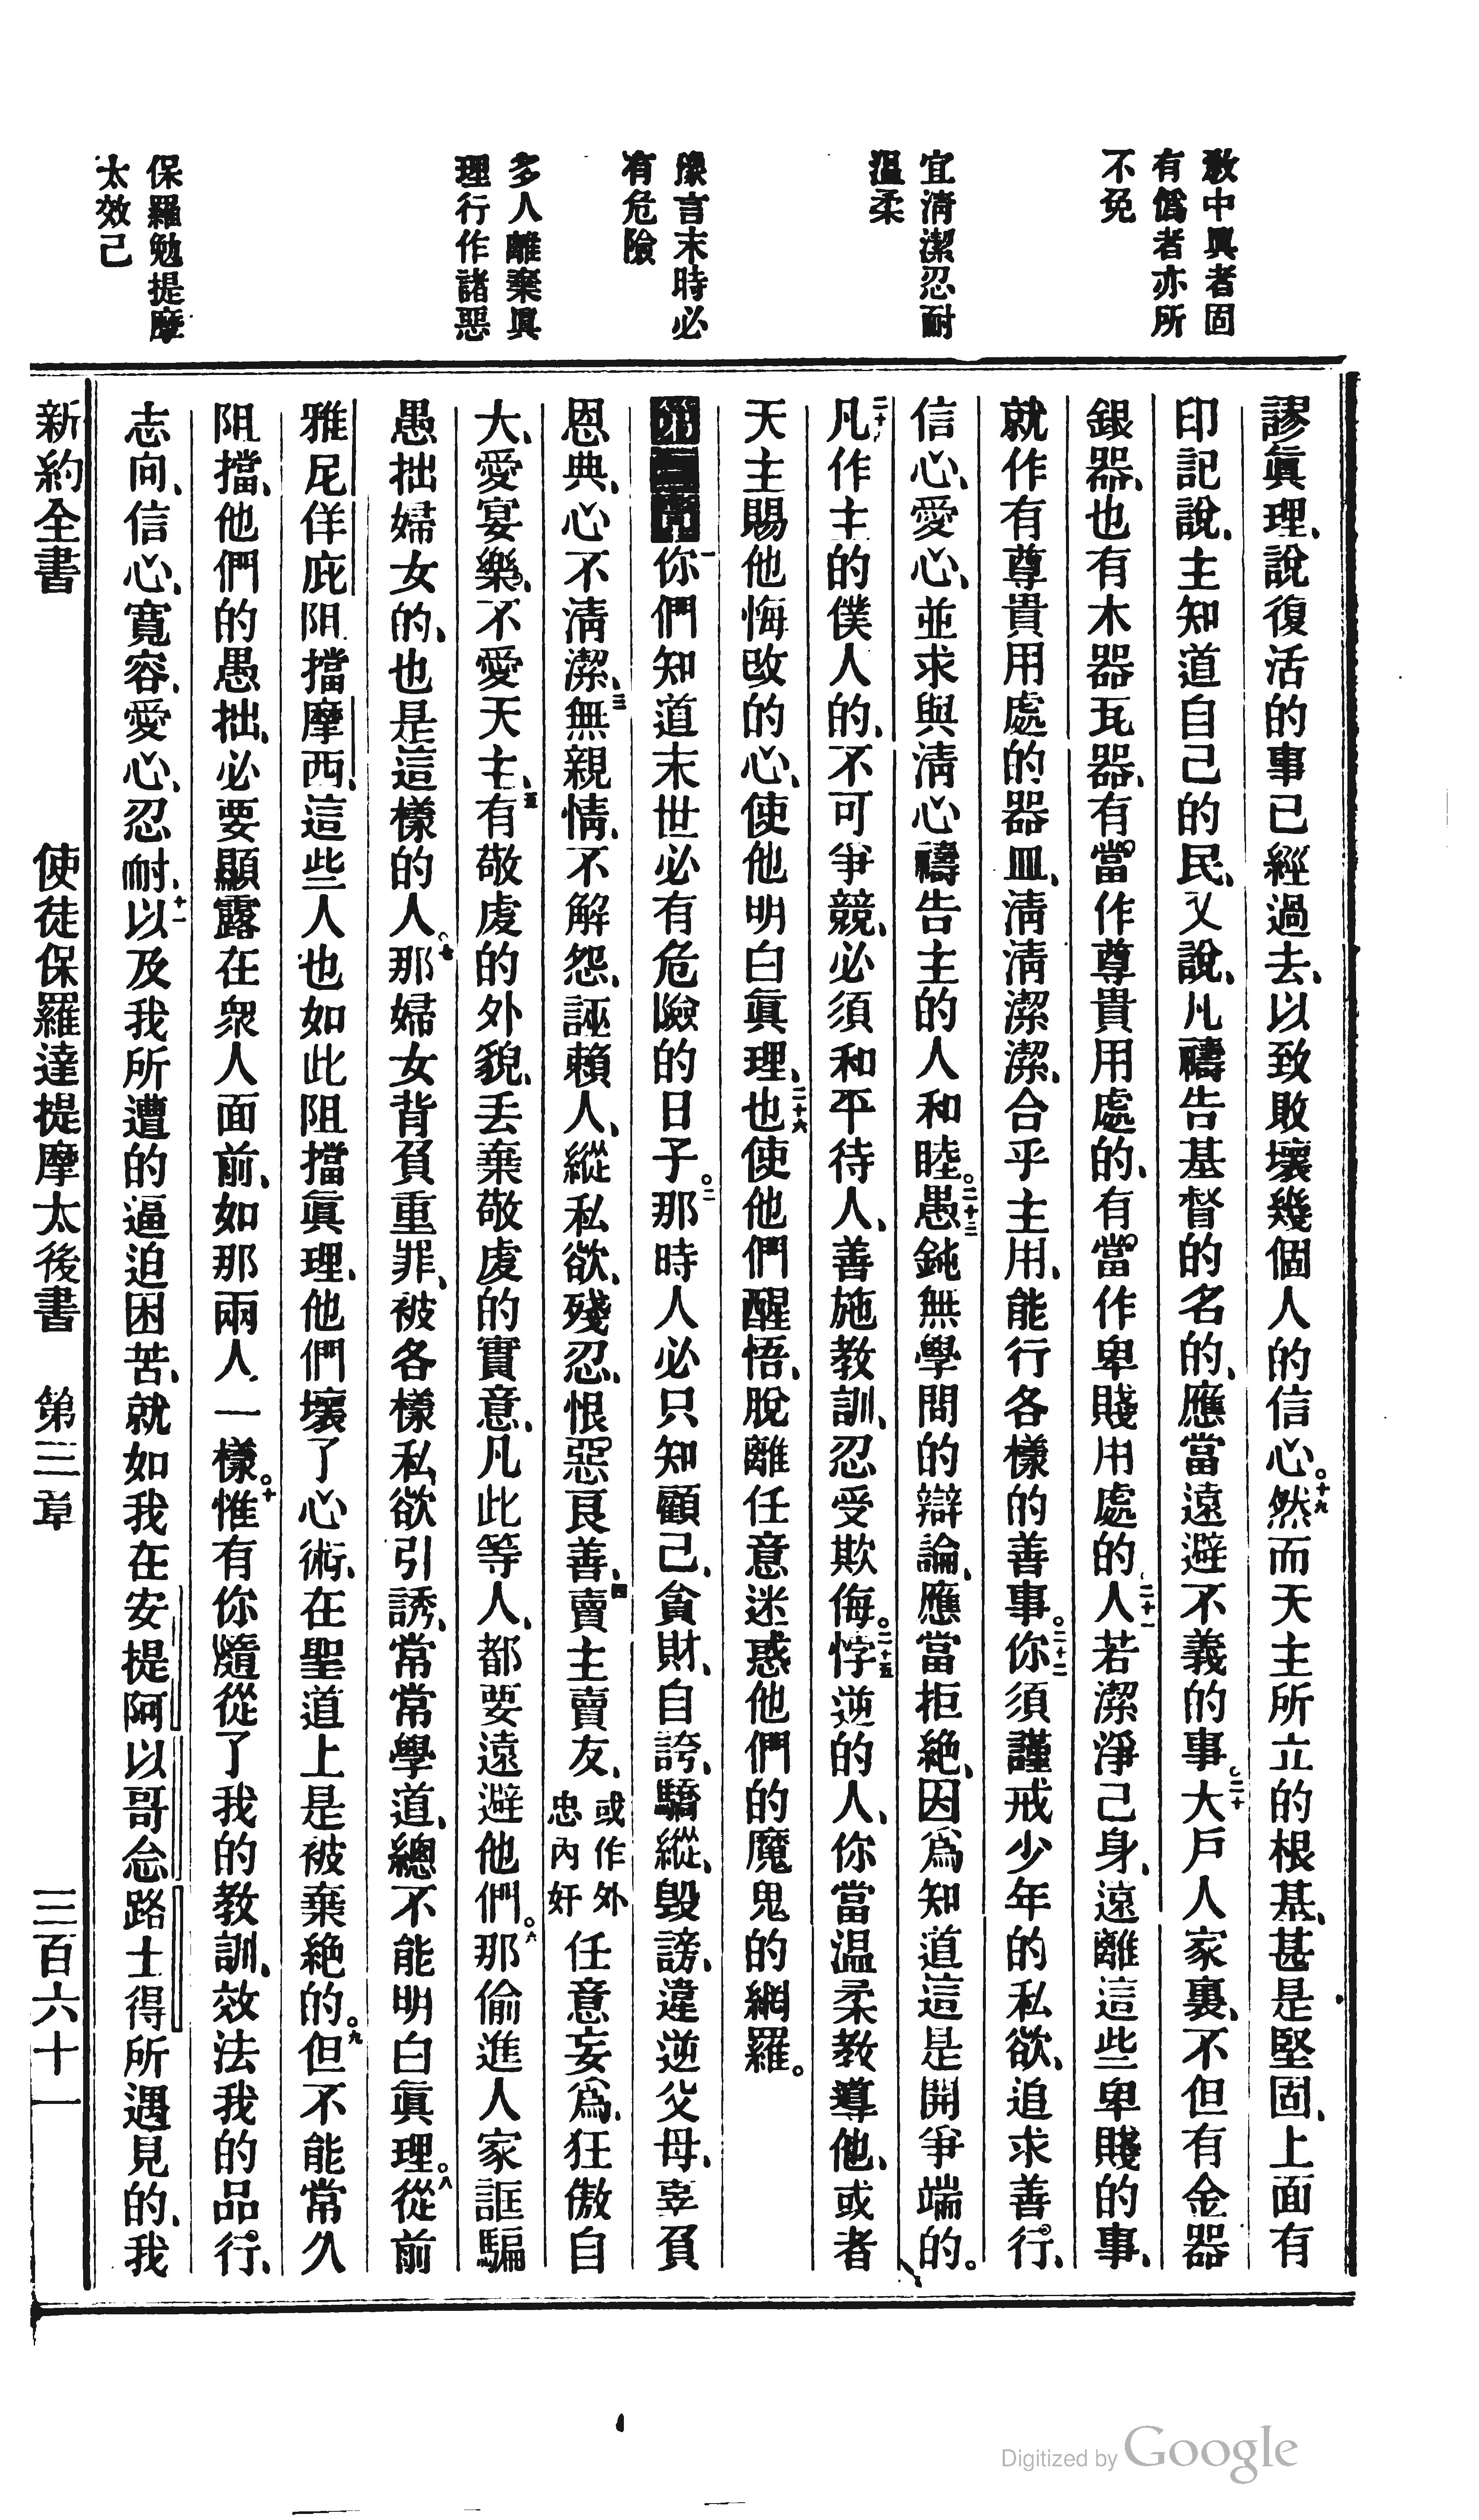 教中眞者固
有僞者亦所
不免
宜清潔忍耐
溫柔
豫言末時必
有危險
多人離棄眞
理行作諸惡
保羅勉提摩
太效己
謬眞理、說復活的事已經過去、以致敗壞幾個人的信心。十九然而天主所立的根基、甚是堅固、上面有
印記說、主知道自己的民、又說、凡禱告基督的名的、應當遠避不義的事。二十大戶人家裏、不但有金器
銀器、也有木器瓦器、有當作尊貴用處的、有當作卑賤用處的。二十一人若潔淨己身、遠離這些卑賤的事、
就作有尊貴用處的器皿、清清潔潔、合乎主用、能行各樣的善事。二十二你須謹戒少年的私欲、追求善行、
信心、愛心、並求與清心禱告主的人和睦。二十三愚鈍無學問的辯論、應當拒絶、因爲知道這是開爭端的。
二十四凡作主的僕人的、不可爭競、必須和平待人、善施教訓、忍受欺侮。二十五悖逆的人、你當溫柔教導他、或者
天主賜他悔改的心、使他明白眞理、二十六也使他們醒悟、脫離任意迷惑他們的魔鬼的網羅。
第三章一你們知道末世必有危險的日子。二那時人必只知顧己、貪財、自誇、驕縱、毀謗、違逆父母、辜負
恩典、心不清潔、三無親情、不解怨、誣賴人、縱私欲、殘忍、恨惡良善、四賣主賣友、或作外忠內奸任意妄爲、狂傲自
大、愛宴樂、不愛天主、五有敬虔的外貌、丢棄敬虔的實意、凡此等人、都要遠避他們。六那偷進人家誆騙
愚拙婦女的、也是這樣的人。七那婦女背負重罪、被各樣私欲引誘、常常學道、總不能明白眞理。八從前
雅尼佯庇阻擋摩西、這些人也如此阻擋眞理、他們壞了心術、在聖道上是被棄絶的。九但不能常久
阻擋、他們的愚拙、必要顯露在衆人面前、如那兩人一樣。十惟有你隨從了我的教訓、效法我的品行、
志向、信心、寬容、愛心、忍耐、十一以及我所遭的逼迫困苦、就如我在安提阿以哥念路士得所遇見的、我
新約全書 使徒保羅達提摩太後書 第三章 三百六十一
Digitized by Google